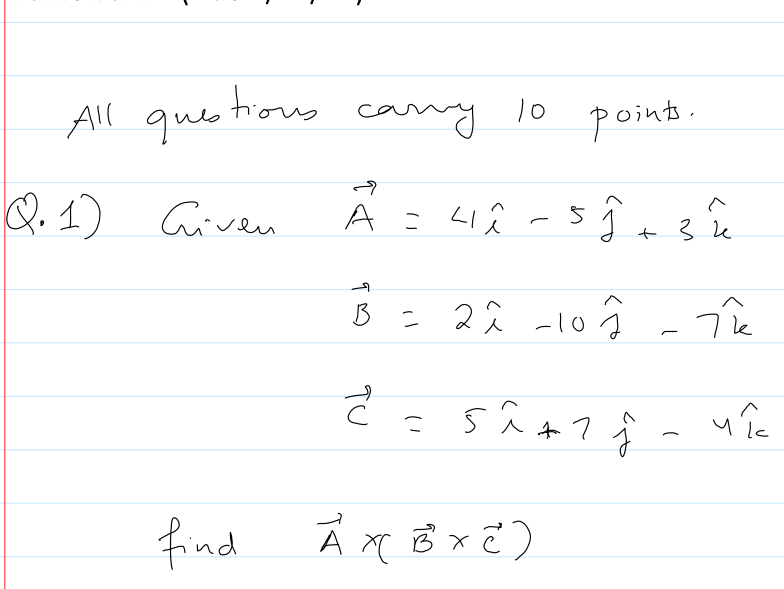 All questions carry 10 points.
Q.1) Given A⃗ = 4î - 5ĵ + 3k̂
B⃗ = 2î - 10ĵ - 7k̂
C⃗ = 5î + 7ĵ - 4k̂
find A⃗ x( B⃗ x C⃗ )